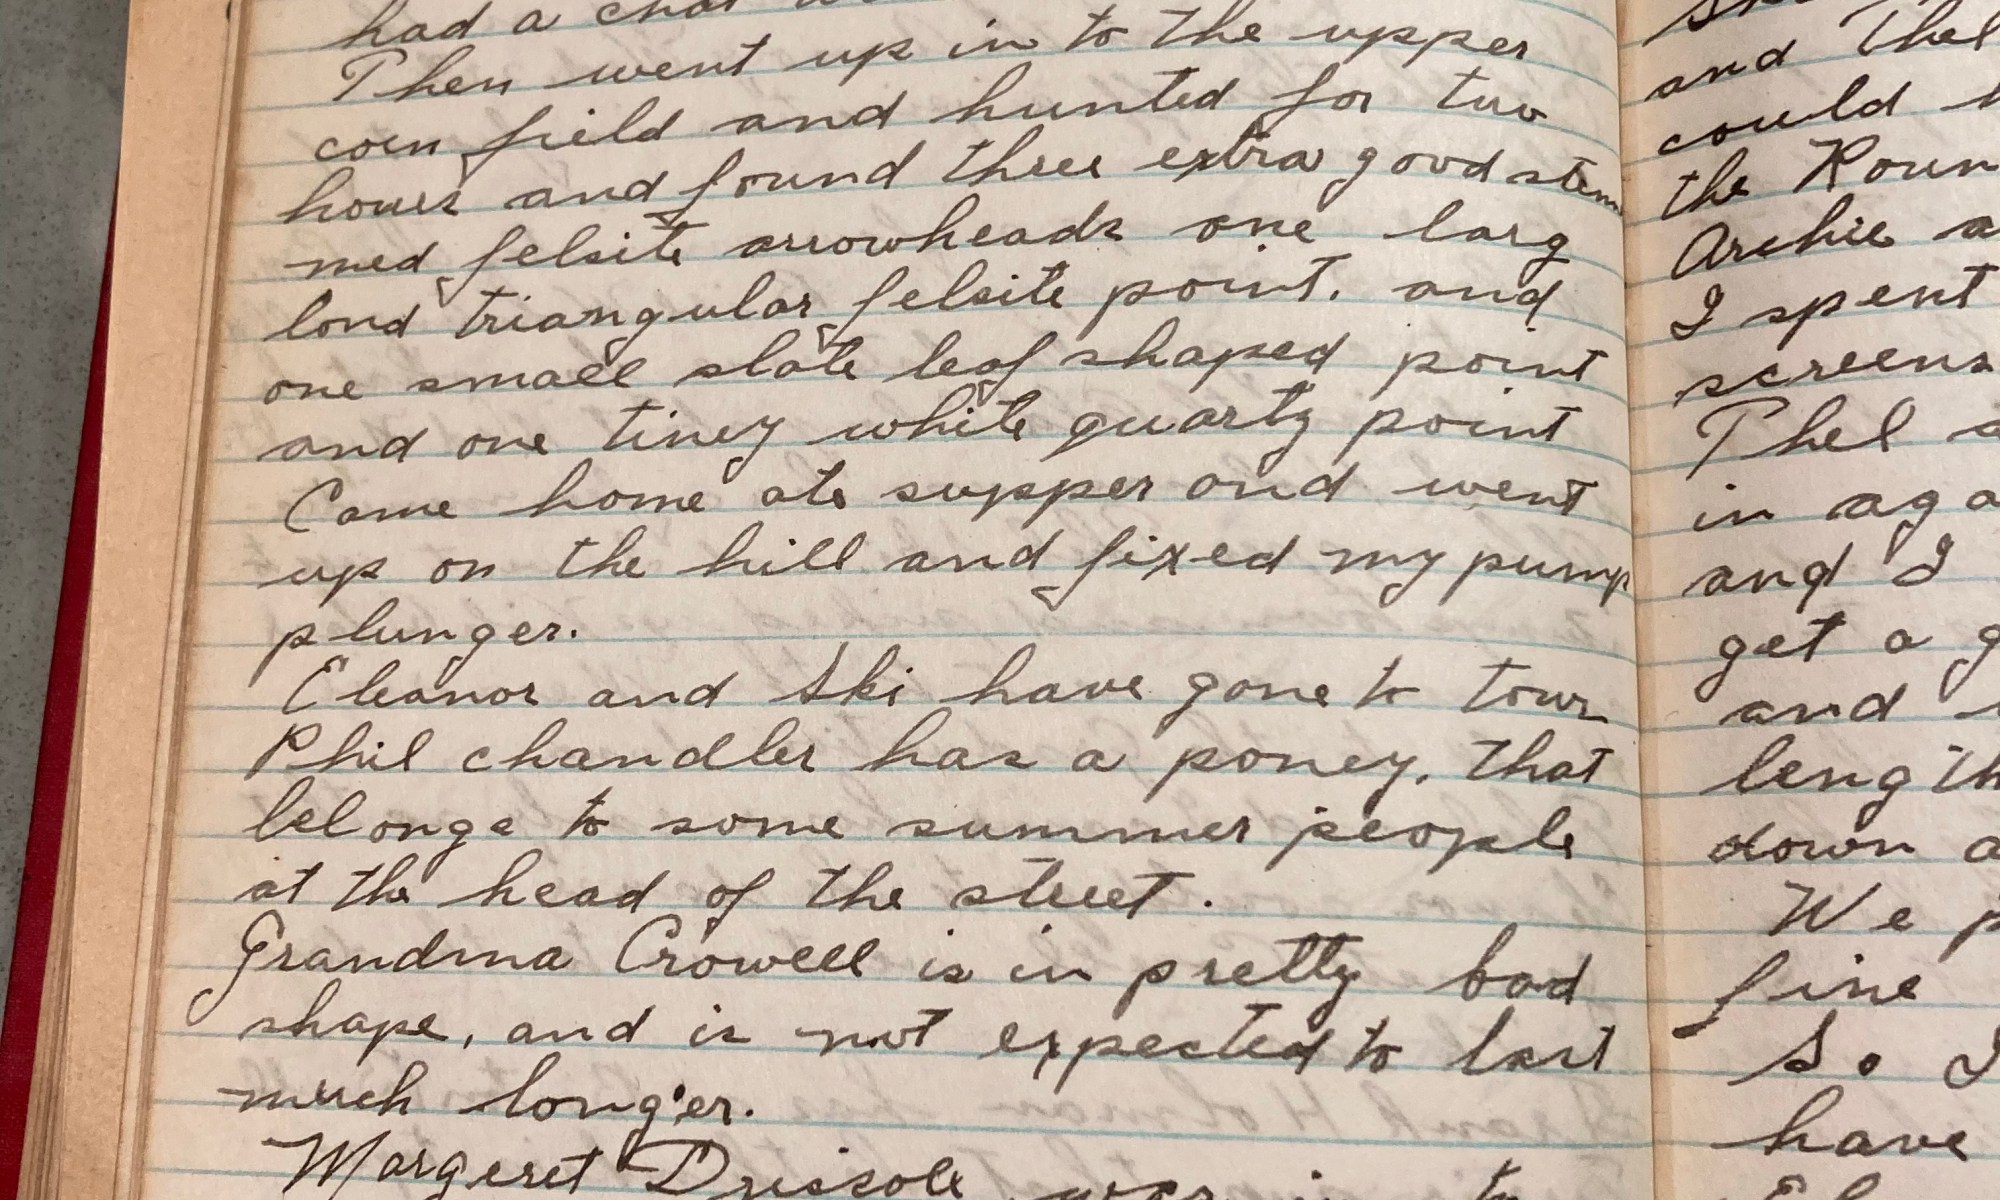 had a chat
Then went up in to the upper
corn field and hunted for two
hours and found three extra good stem
med felsite arrowheads one larg
lond triangular felsite point. and
one small slate leaf shaped point
and one tiney white quartz point
Came home ate supper and went
up on the hill and fixed my pump
plunger.
Eleanor and Ski have gone to town
Phil chandler has a poney. that
belongs to some summer people
at the head of the street.
Grandma Crowell is in pretty bad
shape, and is not expected to last
much longer.
Margeret Driscole was in to
and Thel
could
the Roun
Archie a
I spent
screens
Phel a
in aga
and I
get a g
and
length
down a
We p
fine
So I
have